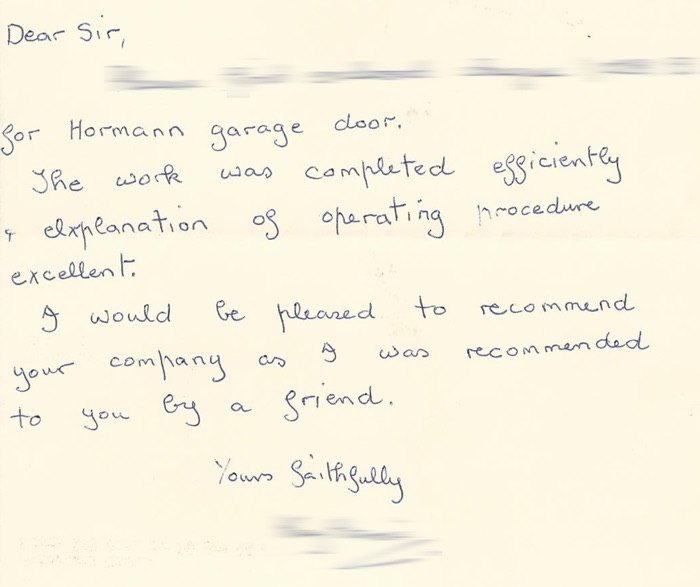 Dear Sir,
for Hormann garage door.
The work was completed efficiently
& explanation of operating procedure
excellent.
I would be pleased to recommend
your company as I was recommended
to you by a friend.
Yours faithfully